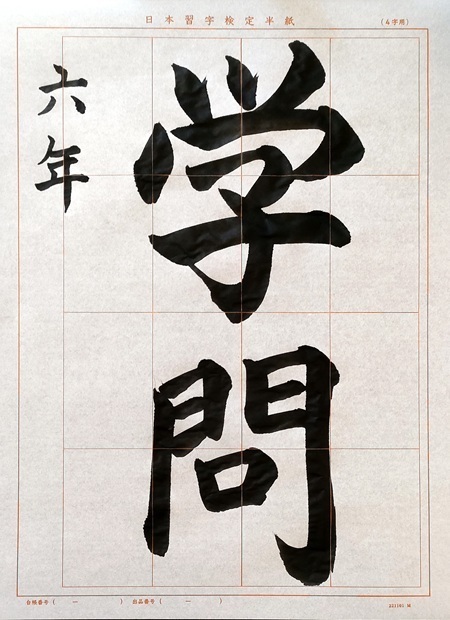 日本習字検定半紙
(4字用)
学問
六年
台帳番号 ( ー ) 出品番号 ( ー )